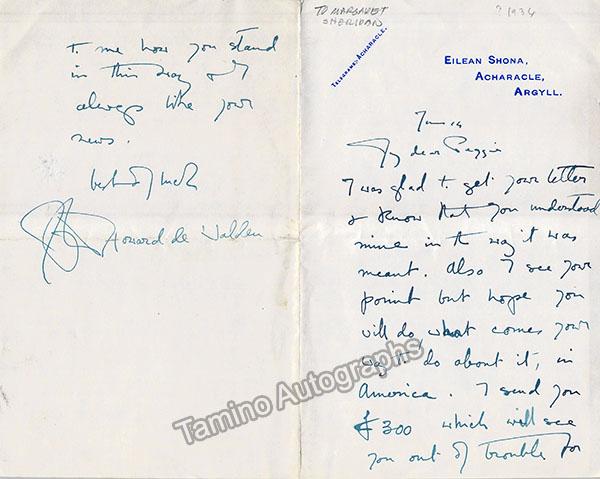 TO MARGARET
SHERIDAN
? 1934
Telegrams: Acharacle.
Eilean Shona,
Acharacle,
Argyll.
June 14
My dear Peggie
I was glad to get your letter
& know that you understood
mine in the way it was
meant. Also I see your
point but hope you
will do what comes your
way to do about it, in
America. I send you
£300 which will see
you out of trouble for
to me how you stand
in this way &
always like your
news.
best of luck
Howard de Walden
Tamino Autographs